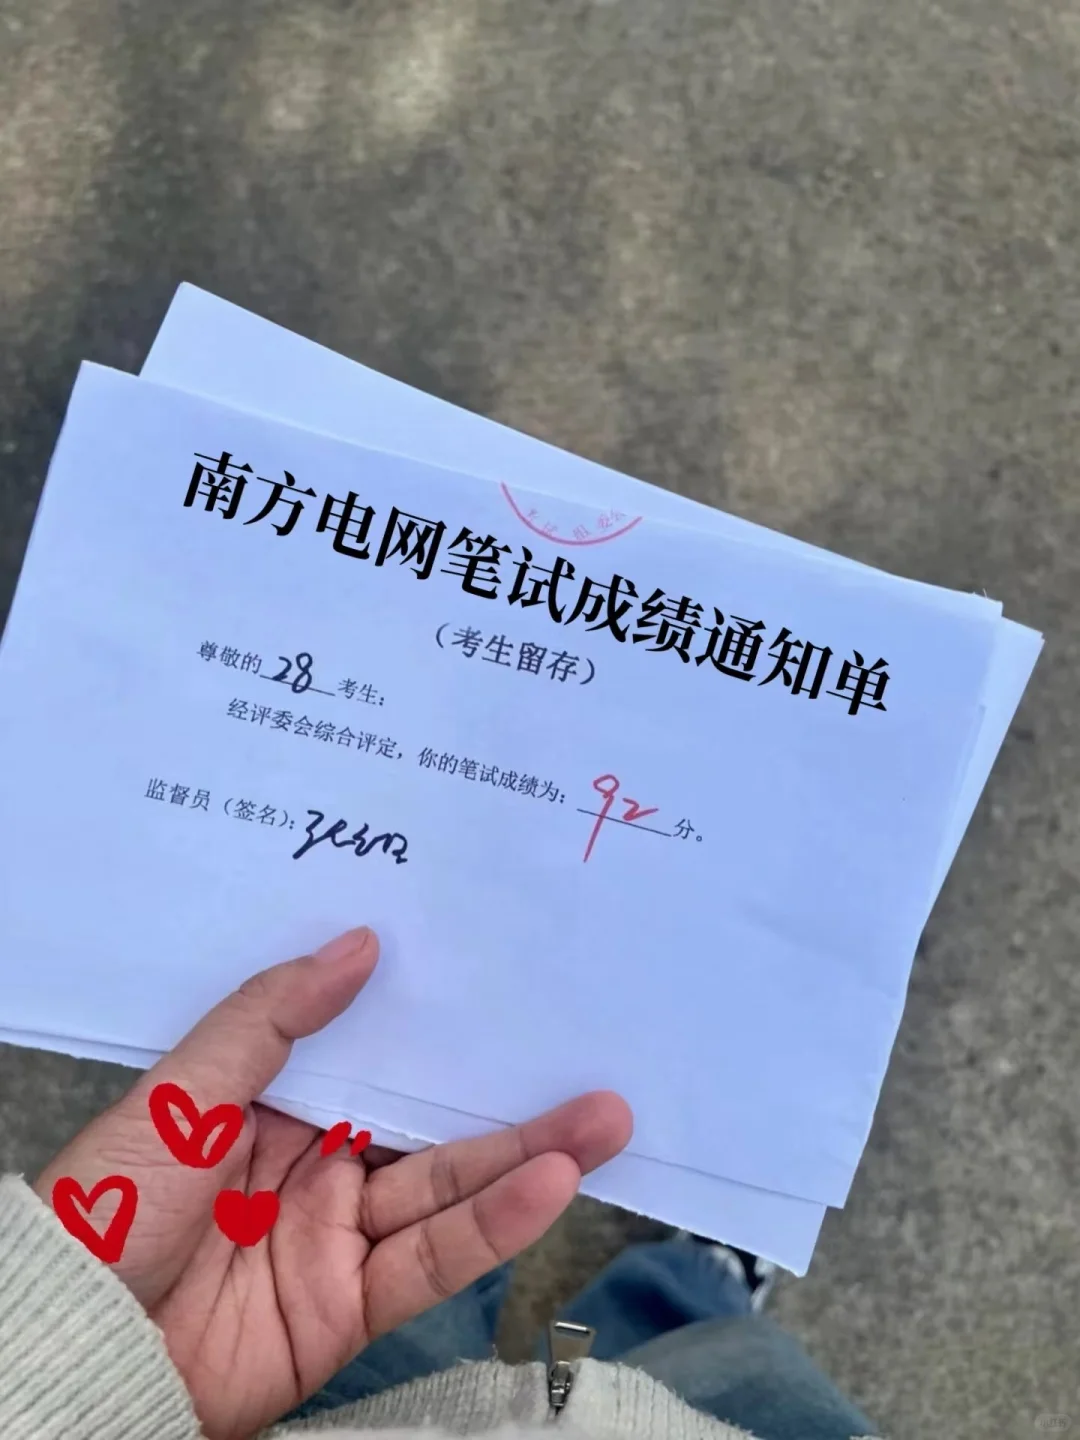 南方电网笔试成绩通知单
（考生留存）
尊敬的 28 考生：
经评委会综合评定，你的笔试成绩为： 92 分。
监督员（签名）：